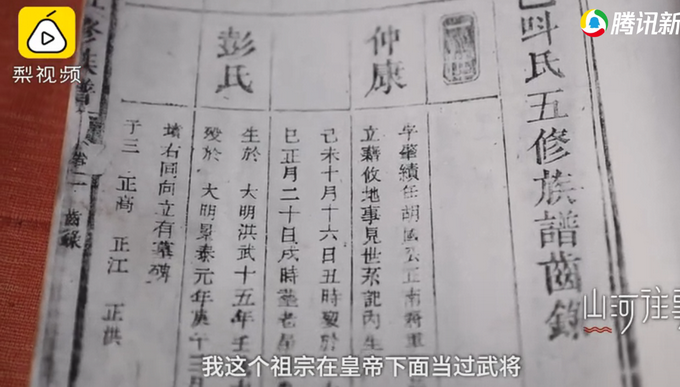 梨视频
腾讯新
氏五修族譜齒錄
仲康
彭氏
字肇績任胡
立籍攸地事見世系記內生
己未十月十六日丑時歿於
巳正月二十日戌時葬老
生於 大明洪武十五年壬
歿於 大明景泰元年庚午三
墳右同向立有墓碑
子三 正高 正江 正洪
修族譜
卷二 齒錄
山河往事
我这个祖宗在皇帝下面当过武将